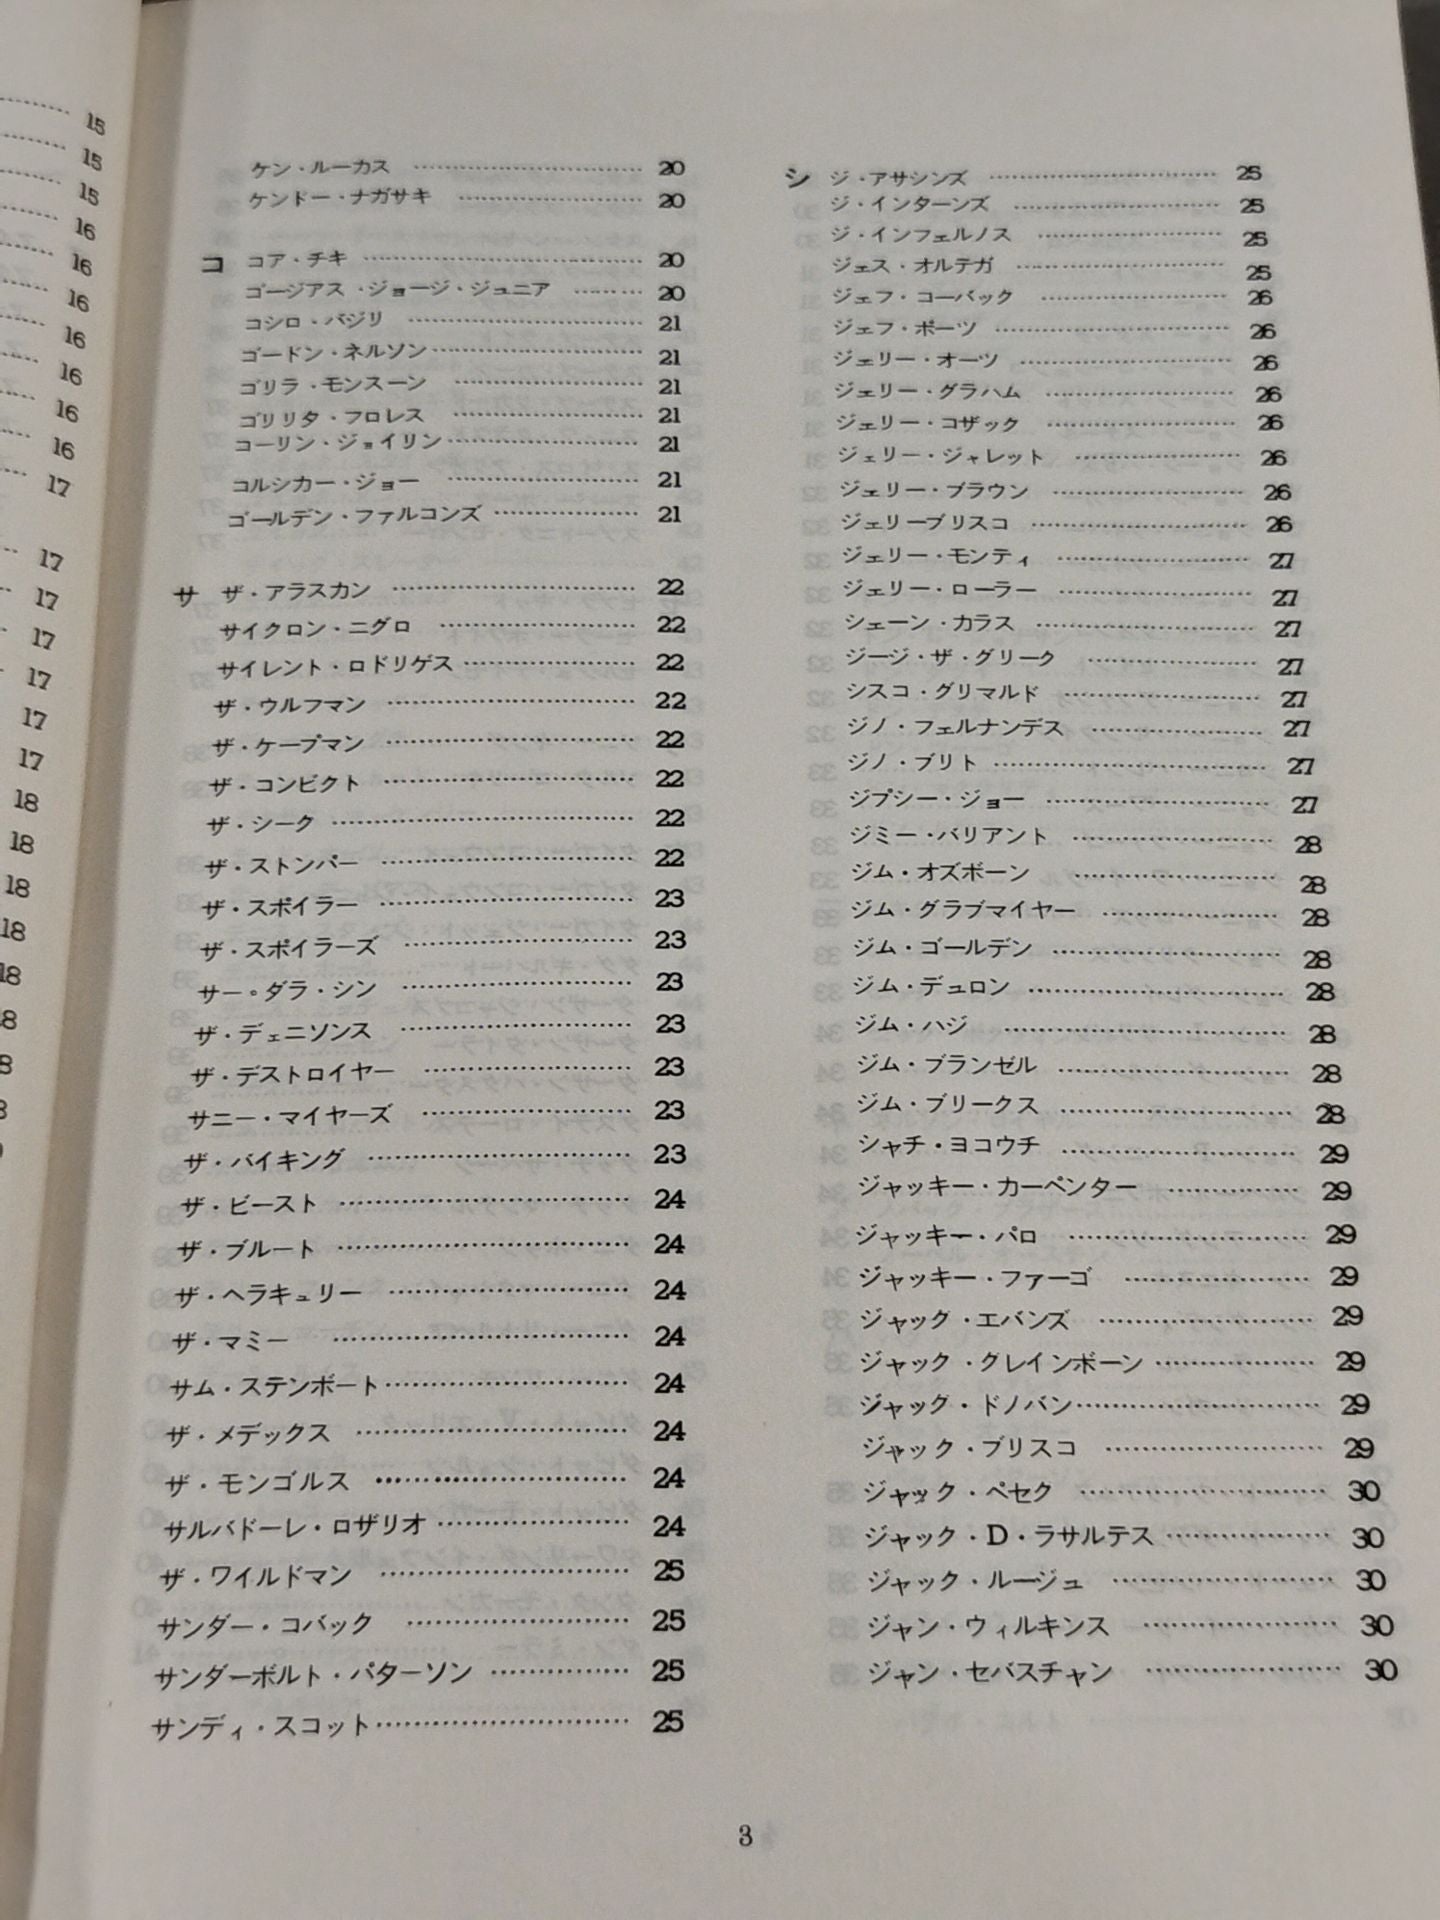 15
15
15
16
16
16
16
16
16
16
17
17
17
17
17
17
17
18
18
18
18
18
ケン・ルーカス ……………… 20
ケンドー・ナガサキ ……………… 20
コ コア・チキ ……………… 20
ゴージアス・ジョージ・ジュニア ……… 20
コシロ・バジリ ……………… 21
ゴードン・ネルソン ……………… 21
ゴリラ・モンスーン ……………… 21
ゴリリタ・フロレス ……………… 21
コーリン・ジョイリン ……………… 21
コルシカー・ジョー ……………… 21
ゴールデン・ファルコンズ ……………… 21
サ ザ・アラスカン ……………… 22
サイクロン・ニグロ ……………… 22
サイレント・ロドリゲス ……………… 22
ザ・ウルフマン ……………… 22
ザ・ケープマン ……………… 22
ザ・コンビクト ……………… 22
ザ・シーク ……………… 22
ザ・ストンパー ……………… 22
ザ・スポイラー ……………… 23
ザ・スポイラーズ ……………… 23
サー・ダラ・シン ……………… 23
ザ・デェニソンス ……………… 23
ザ・デストロイヤー ……………… 23
サニー・マイヤーズ ……………… 23
ザ・バイキング ……………… 23
ザ・ビースト ……………… 24
ザ・ブルート ……………… 24
ザ・ヘラキュリー ……………… 24
ザ・マミー ……………… 24
サム・ステンボート ……………… 24
ザ・メデックス ……………… 24
ザ・モンゴルス ……………… 24
サルバドーレ・ロザリオ ……………… 24
ザ・ワイルドマン ……………… 25
サンダー・コバック ……………… 25
サンダーボルト・パターソン ……………… 25
サンディ・スコット ……………… 25
シ ジ・アサシンズ ……………… 25
ジ・インターンズ ……………… 25
ジ・インフェルノス ……………… 25
ジェス・オルテガ ……………… 25
ジェフ・コーバック ……………… 26
ジェフ・ポーツ ……………… 26
ジェリー・オーツ ……………… 26
ジェリー・グラハム ……………… 26
ジェリー・コザック ……………… 26
ジェリー・ジャレット ……………… 26
ジェリー・ブラウン ……………… 26
ジェリーブリスコ ……………… 26
ジェリー・モンティ ……………… 27
ジェリー・ローラー ……………… 27
シェーン・カラス ……………… 27
ジージ・ザ・グリーク ……………… 27
シスコ・グリマルド ……………… 27
ジノ・フェルナンデス ……………… 27
ジノ・ブリト ……………… 27
ジプシー・ジョー ……………… 27
ジミー・バリアント ……………… 28
ジム・オズボーン ……………… 28
ジム・グラブマイヤー ……………… 28
ジム・ゴールデン ……………… 28
ジム・デュロン ……………… 28
ジム・ハジ ……………… 28
ジム・ブランゼル ……………… 28
ジム・ブリークス ……………… 28
シャチ・ヨコウチ ……………… 29
ジャッキー・カーペンター ……………… 29
ジャッキー・パロ ……………… 29
ジャッキー・ファーゴ ……………… 29
ジャック・エバンズ ……………… 29
ジャック・グレインボーン ……………… 29
ジャック・ドノバン ……………… 29
ジャック・ブリスコ ……………… 29
ジャック・ペセク ……………… 30
ジャック・D・ラサルテス ……………… 30
ジャック・ルージュ ……………… 30
ジャン・ウィルキンス ……………… 30
ジャン・セバスチャン ……………… 30
3